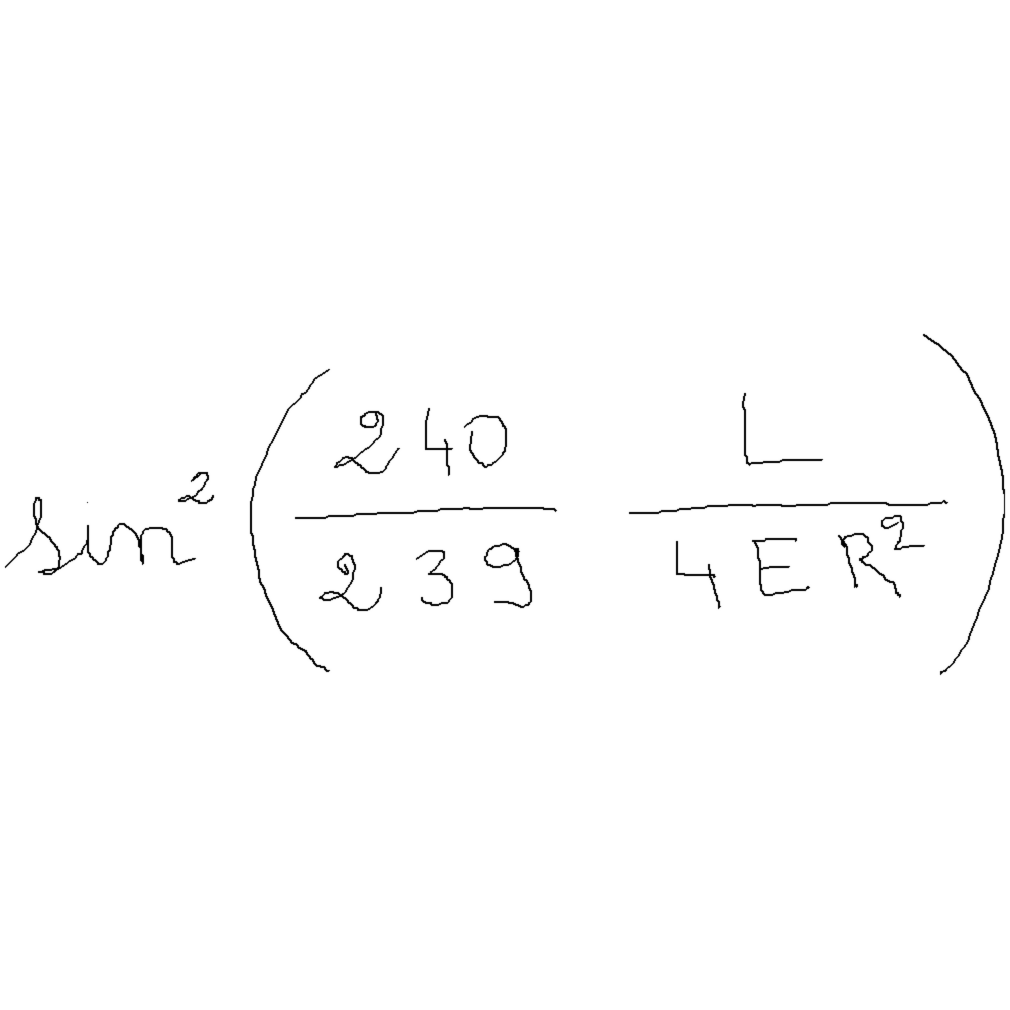 sin² ( 240/239 L/4ER² )